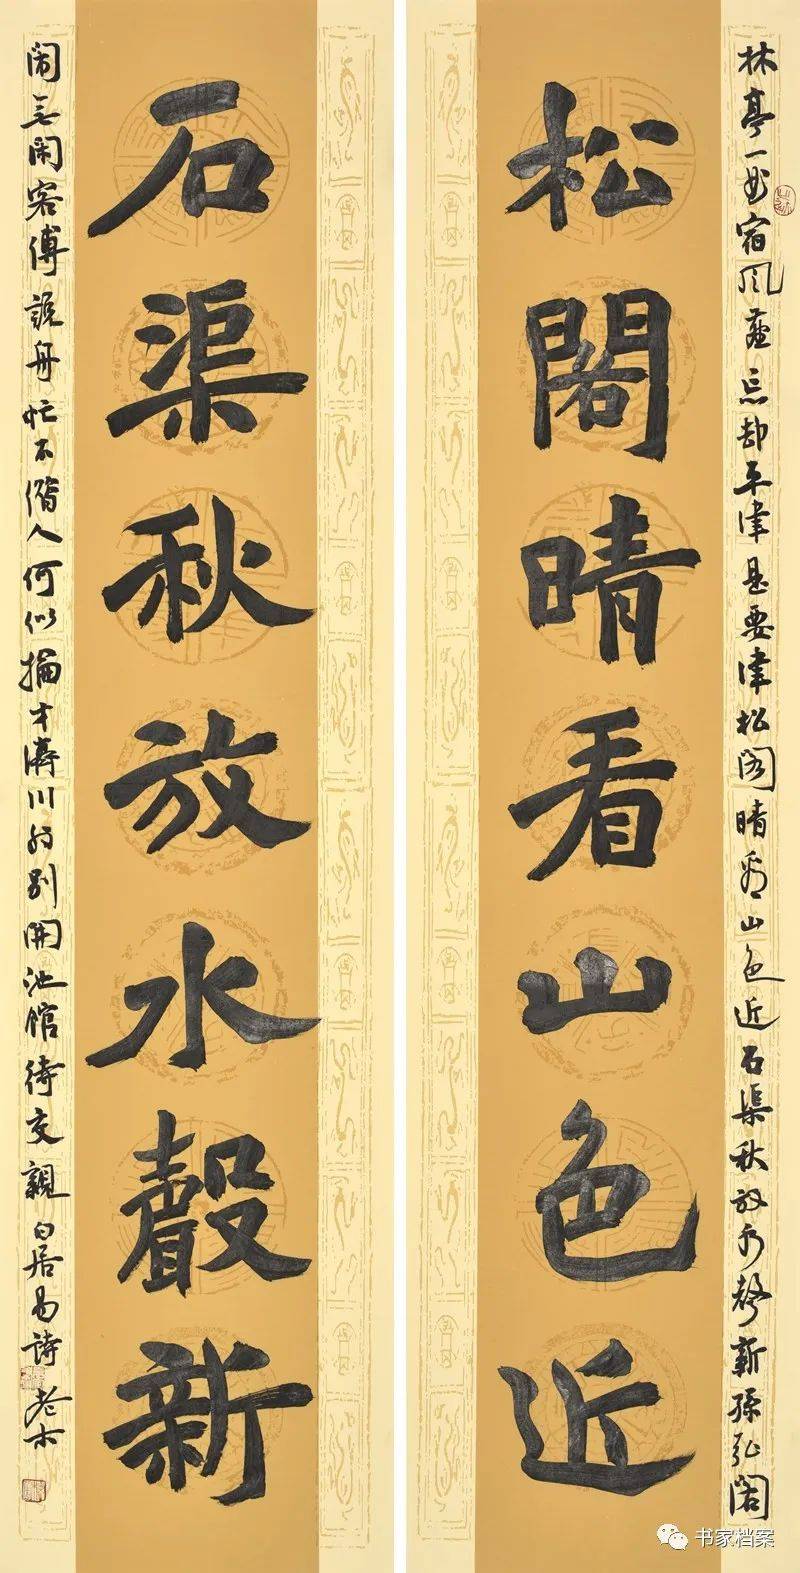 松閣晴看山色近
石渠秋放水聲新
林亭一出宿风塵忘却平津是要津松阁晴看山色近石渠秋放水聲新孫弘阁
闹无闲客傅説舟忙不借人何似掄才濟川外别開池馆待交親白居易詩 老木
书家档案